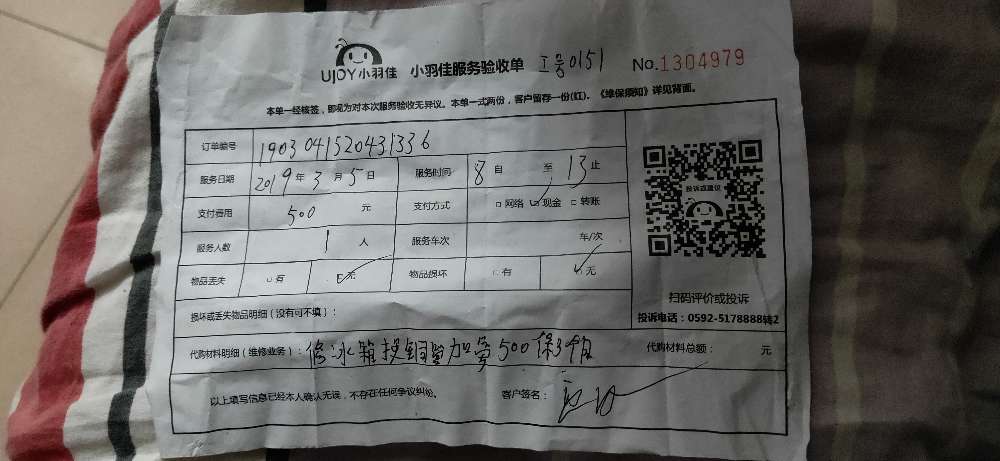 UJOY小羽佳 小羽佳服务验收单 工号0151 No.1304979
本单一经核签,即视为对本次服务验收无异议。本单一式两份,客户留存一份(红)。《维保须知》详见背面。
订单编号 1903041520431336
服务日期 2019年3月5日 服务时间 8自 至 13止
支付费用 500 元 支付方式 □网络 ☑现金 □转账
服务人数 1 人 服务车次 车/次
物品丢失 □有 ☑无 物品损坏 □有 ☑无
投诉或建议
扫码评价或投诉
投诉电话:0592-5178888转2
损坏或丢失物品明细(没有可不填):
代购材料明细(维修业务): 修冰箱换铜管加雪500保3个月 代购材料总额: 元
以上填写信息已经本人确认无误,不存在任何争议纠纷。 客户签名: